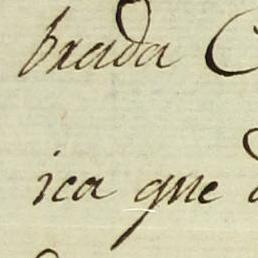 brada C
ica que